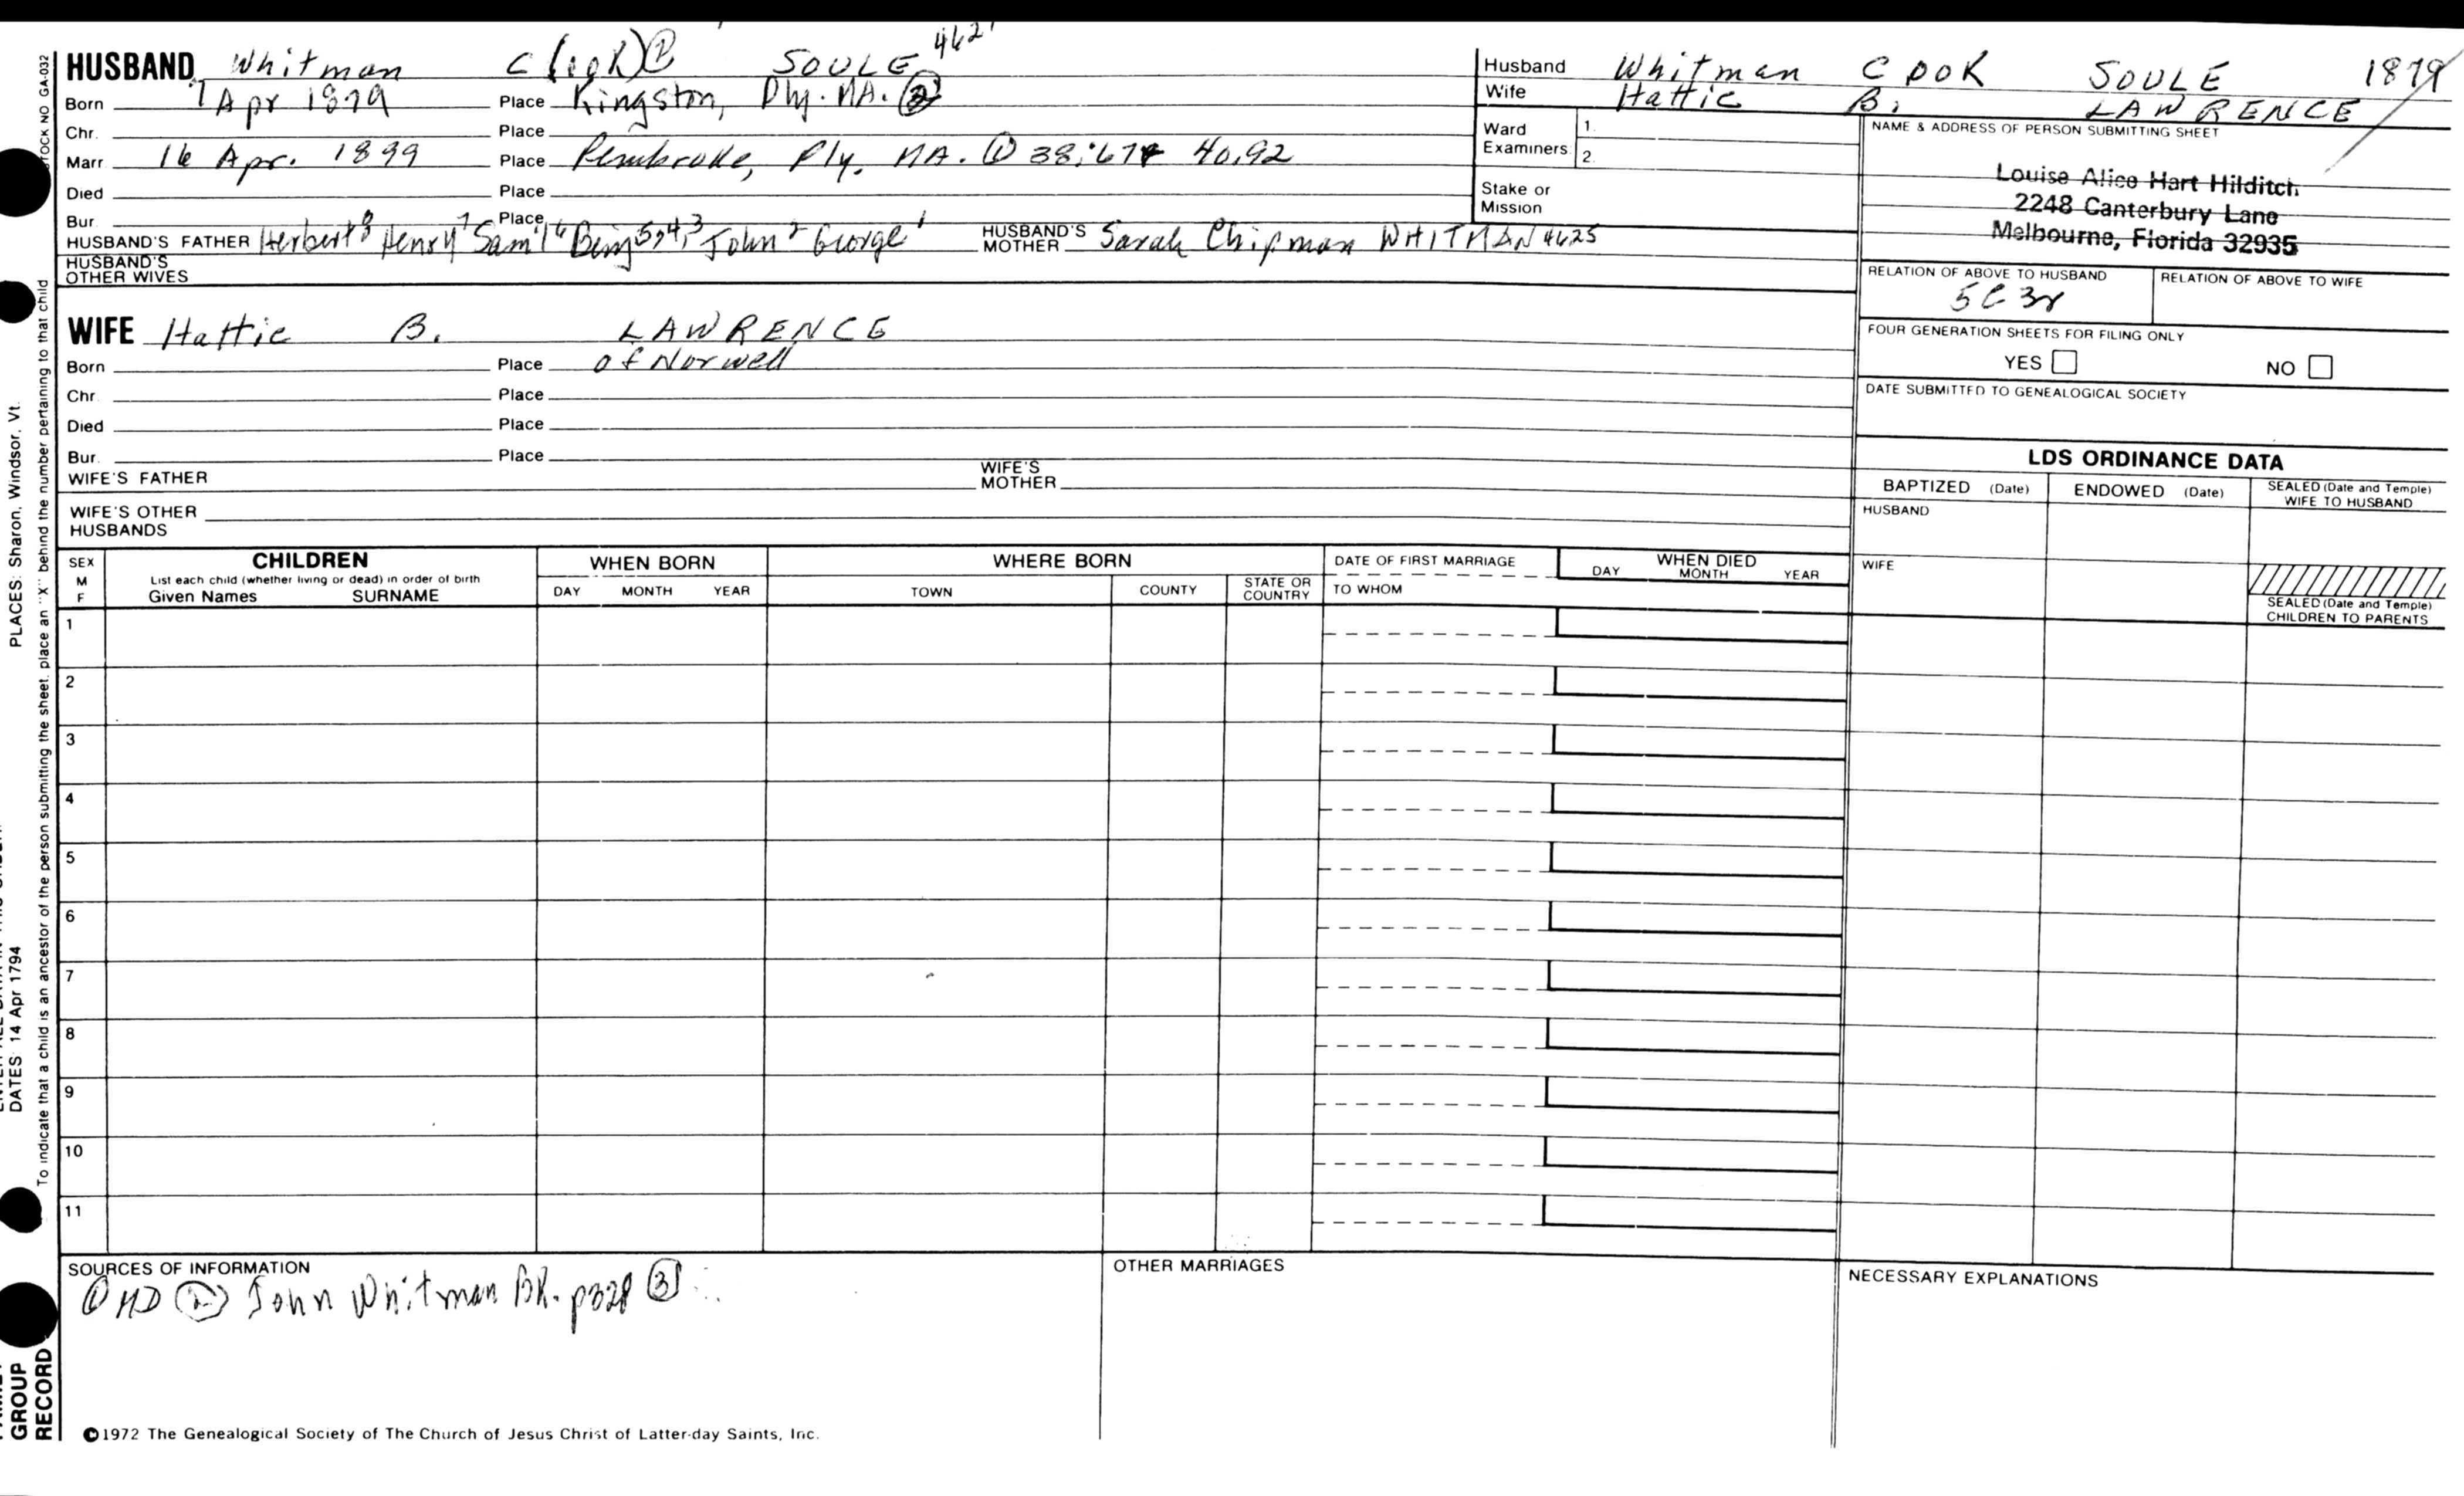 HUSBAND Whitman C(ook) ① SOULE 4621
Born 7 Apr 1879 Place Kingston, Ply. MA. ②
Chr. Place
Marr. 16 Apr. 1899 Place Pembroke, Ply. MA. ① 38:67 40,92
Died Place
Bur. Place
HUSBAND'S FATHER Herbert8 Henry7 Sam'l6 Benj5,4,3 John2 George1 HUSBAND'S MOTHER Sarah Chipman WHITMAN 4625
HUSBAND'S OTHER WIVES
Husband Whitman COOK SOULE 1879
Wife Hattie B. LAWRENCE
Ward Examiners 1. 2.
Stake or Mission
NAME & ADDRESS OF PERSON SUBMITTING SHEET
Louise Alice Hart Hilditch
2248 Canterbury Lane
Melbourne, Florida 32935
RELATION OF ABOVE TO HUSBAND RELATION OF ABOVE TO WIFE
5C3r
FOUR GENERATION SHEETS FOR FILING ONLY
YES NO
DATE SUBMITTED TO GENEALOGICAL SOCIETY
WIFE Hattie B. LAWRENCE
Born Place of Norwell
Chr. Place
Died Place
Bur. Place
WIFE'S FATHER WIFE'S MOTHER
WIFE'S OTHER HUSBANDS
LDS ORDINANCE DATA
BAPTIZED (Date) ENDOWED (Date) SEALED (Date and Temple) WIFE TO HUSBAND
HUSBAND
WIFE
SEALED (Date and Temple) CHILDREN TO PARENTS
SEX M F
CHILDREN
List each child (whether living or dead) in order of birth
Given Names SURNAME
WHEN BORN
DAY MONTH YEAR
WHERE BORN
TOWN COUNTY STATE OR COUNTRY
DATE OF FIRST MARRIAGE
TO WHOM
WHEN DIED
DAY MONTH YEAR
1
2
3
4
5
6
7
8
9
10
11
SOURCES OF INFORMATION
① MD ② John Whitman BK. p328 ③
OTHER MARRIAGES
NECESSARY EXPLANATIONS
©1972 The Genealogical Society of The Church of Jesus Christ of Latter-day Saints, Inc.
STOCK NO GA-032
To indicate that a child is an ancestor of the person submitting the sheet, place an "X" behind the number pertaining to that child
PLACES: Sharon, Windsor, Vt.
DATES: 14 Apr 1794
GROUP
RECORD